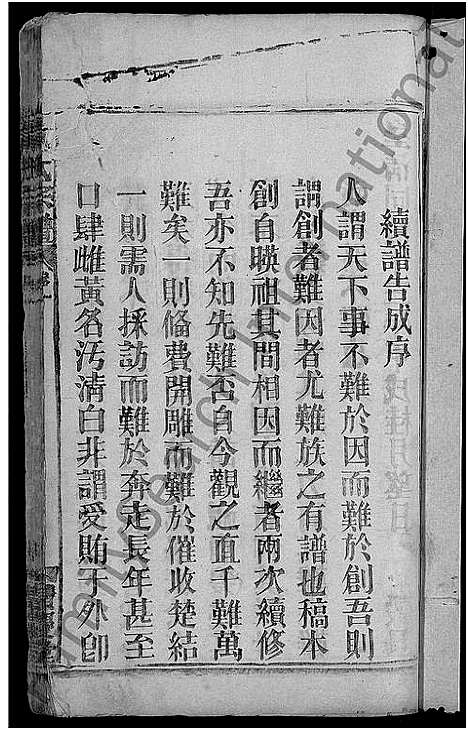 續譜告成序
人謂天下事不難於因而難於創吾則
謂創者難因者尤難族之有譜也稿本
創自暎祖其間相因而繼者兩次續修
吾亦不知先難否自今觀之直千難萬
難矣一則備費開雕而難於催收楚結
一則需人採訪而難於奔走長年甚至
口肆雌黃名汚淸白非謂受賄于外卽